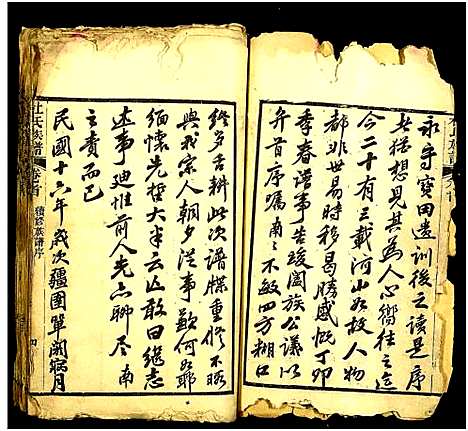 永守寶田遺訓後之讀是序
者猶想見其為人心嚮往之迄
今二十有三載河山如故人物
都非世易時移曷勝感慨丁卯
季春譜事告竣闔族公議以
弁首序囑南南不敏四方糊口
終歲舌耕此次譜牒重修不暇
與我宗人朝夕從事歉何如耶
緬懷先哲大半云亡敢曰繼志
述事迪惟前人光亦聊尽南
之責而已
民國十六年歲次疆圉單閼寎月
杜氏族譜
卷首
續修族譜序
四